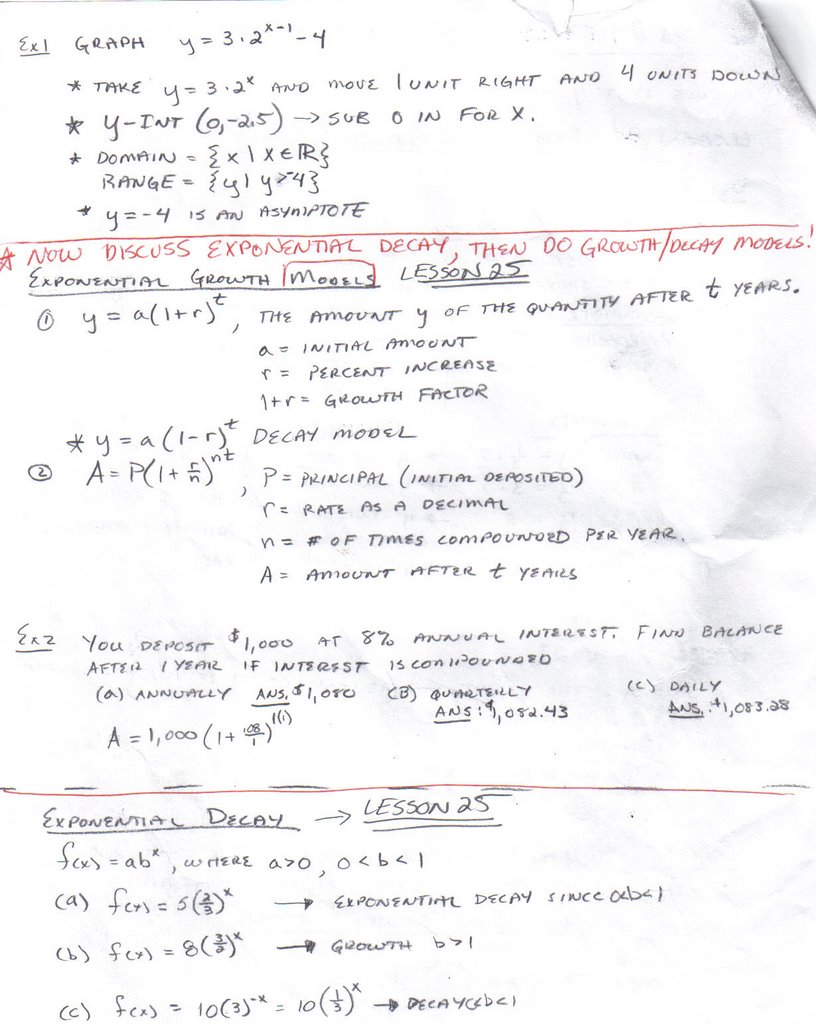 Ex1 GRAPH y = 3·2^(x-1) - 4
* TAKE y = 3·2^x AND MOVE 1 UNIT RIGHT AND 4 UNITS DOWN
* y-INT (0,-2.5) → SUB 0 IN FOR X.
* DOMAIN = {x | x ∈ ℝ}
RANGE = {y | y > -4}
* y = -4 IS AN ASYMPTOTE
* NOW DISCUSS EXPONENTIAL DECAY, THEN DO GROWTH/DECAY MODELS!
EXPONENTIAL GROWTH MODELS LESSON 25
① y = a(1+r)^t, THE AMOUNT y OF THE QUANTITY AFTER t YEARS.
a = INITIAL AMOUNT
r = PERCENT INCREASE
1+r = GROWTH FACTOR
* y = a(1-r)^t DECAY MODEL
② A = P(1 + r/n)^(nt), P = PRINCIPAL (INITIAL DEPOSITED)
r = RATE AS A DECIMAL
n = # OF TIMES COMPOUNDED PER YEAR.
A = AMOUNT AFTER t YEARS
Ex2 YOU DEPOSIT $1,000 AT 8% ANNUAL INTEREST. FIND BALANCE
AFTER 1 YEAR IF INTEREST IS COMPOUNDED
(a) ANNUALLY ANS. $1,080 (B) QUARTERLY (C) DAILY
ANS: $1,082.43 ANS.: $1,083.28
A = 1,000(1 + .08/1)^(1(1))
EXPONENTIAL DECAY → LESSON 25
f(x) = ab^x, WHERE a>0, 0<b<1
(a) f(x) = 5(2/3)^x → EXPONENTIAL DECAY SINCE 0<b<1
(b) f(x) = 8(3/2)^x → GROWTH b>1
(c) f(x) = 10(3)^-x = 10(1/3)^x → DECAY 0<b<1